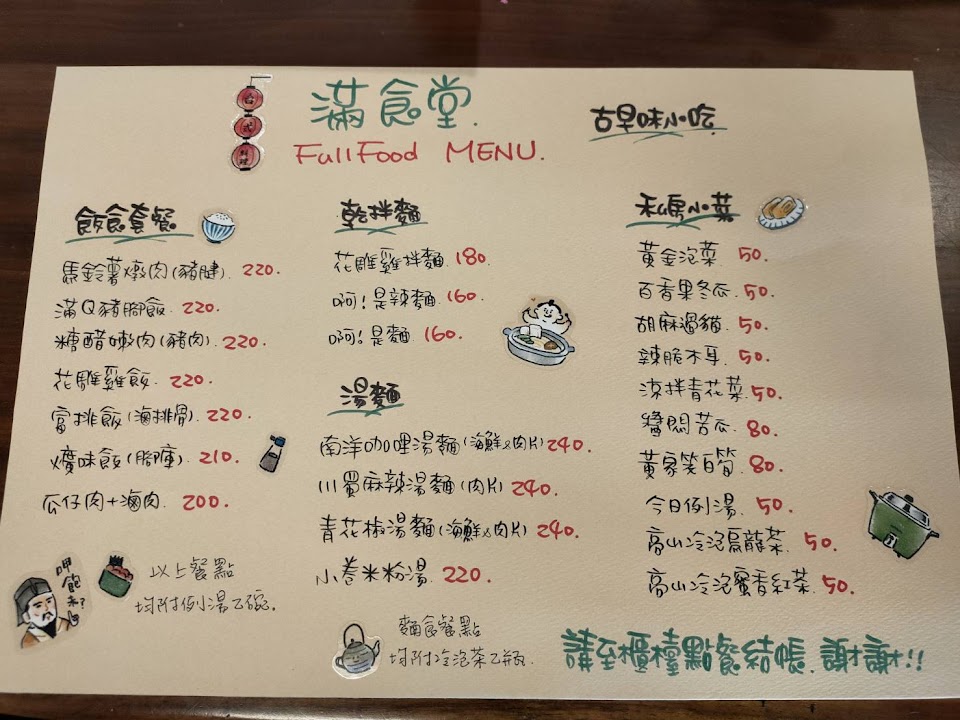 台式料理
滿食堂.
FullFood MENU.
古早味小吃
飯食套餐
馬鈴薯燉肉(豬腱). 220.
滿Q豬腳飯. 220.
糖醋嫩肉(豬肉). 220.
花雕雞飯. 220.
富排飯(滷排骨). 220.
爌味飯(腳庫). 210.
瓜仔肉+滷肉. 200.
呷飽未?
以上餐點
均附例湯乙碗.
乾拌麵
花雕雞拌麵. 180.
啊!是辣麵. 160.
啊!是麵. 160.
湯麵
南洋咖哩湯麵(海鮮&肉片) 240.
川蜀麻辣湯麵(肉片) 240.
青花椒湯麵(海鮮&肉片) 240.
小卷米粉湯. 220.
麵食餐點
均附冷泡茶乙瓶.
私房小菜
黃金泡菜 50.
百香果冬瓜. 50.
胡麻過貓. 50.
辣脆木耳. 50.
涼拌青花菜. 50.
醬悶苦瓜. 80.
黃家筊白筍. 80.
今日例湯. 50.
高山冷泡烏龍茶. 50.
高山冷泡蜜香紅茶. 50.
請至櫃檯點餐結帳. 謝謝!!